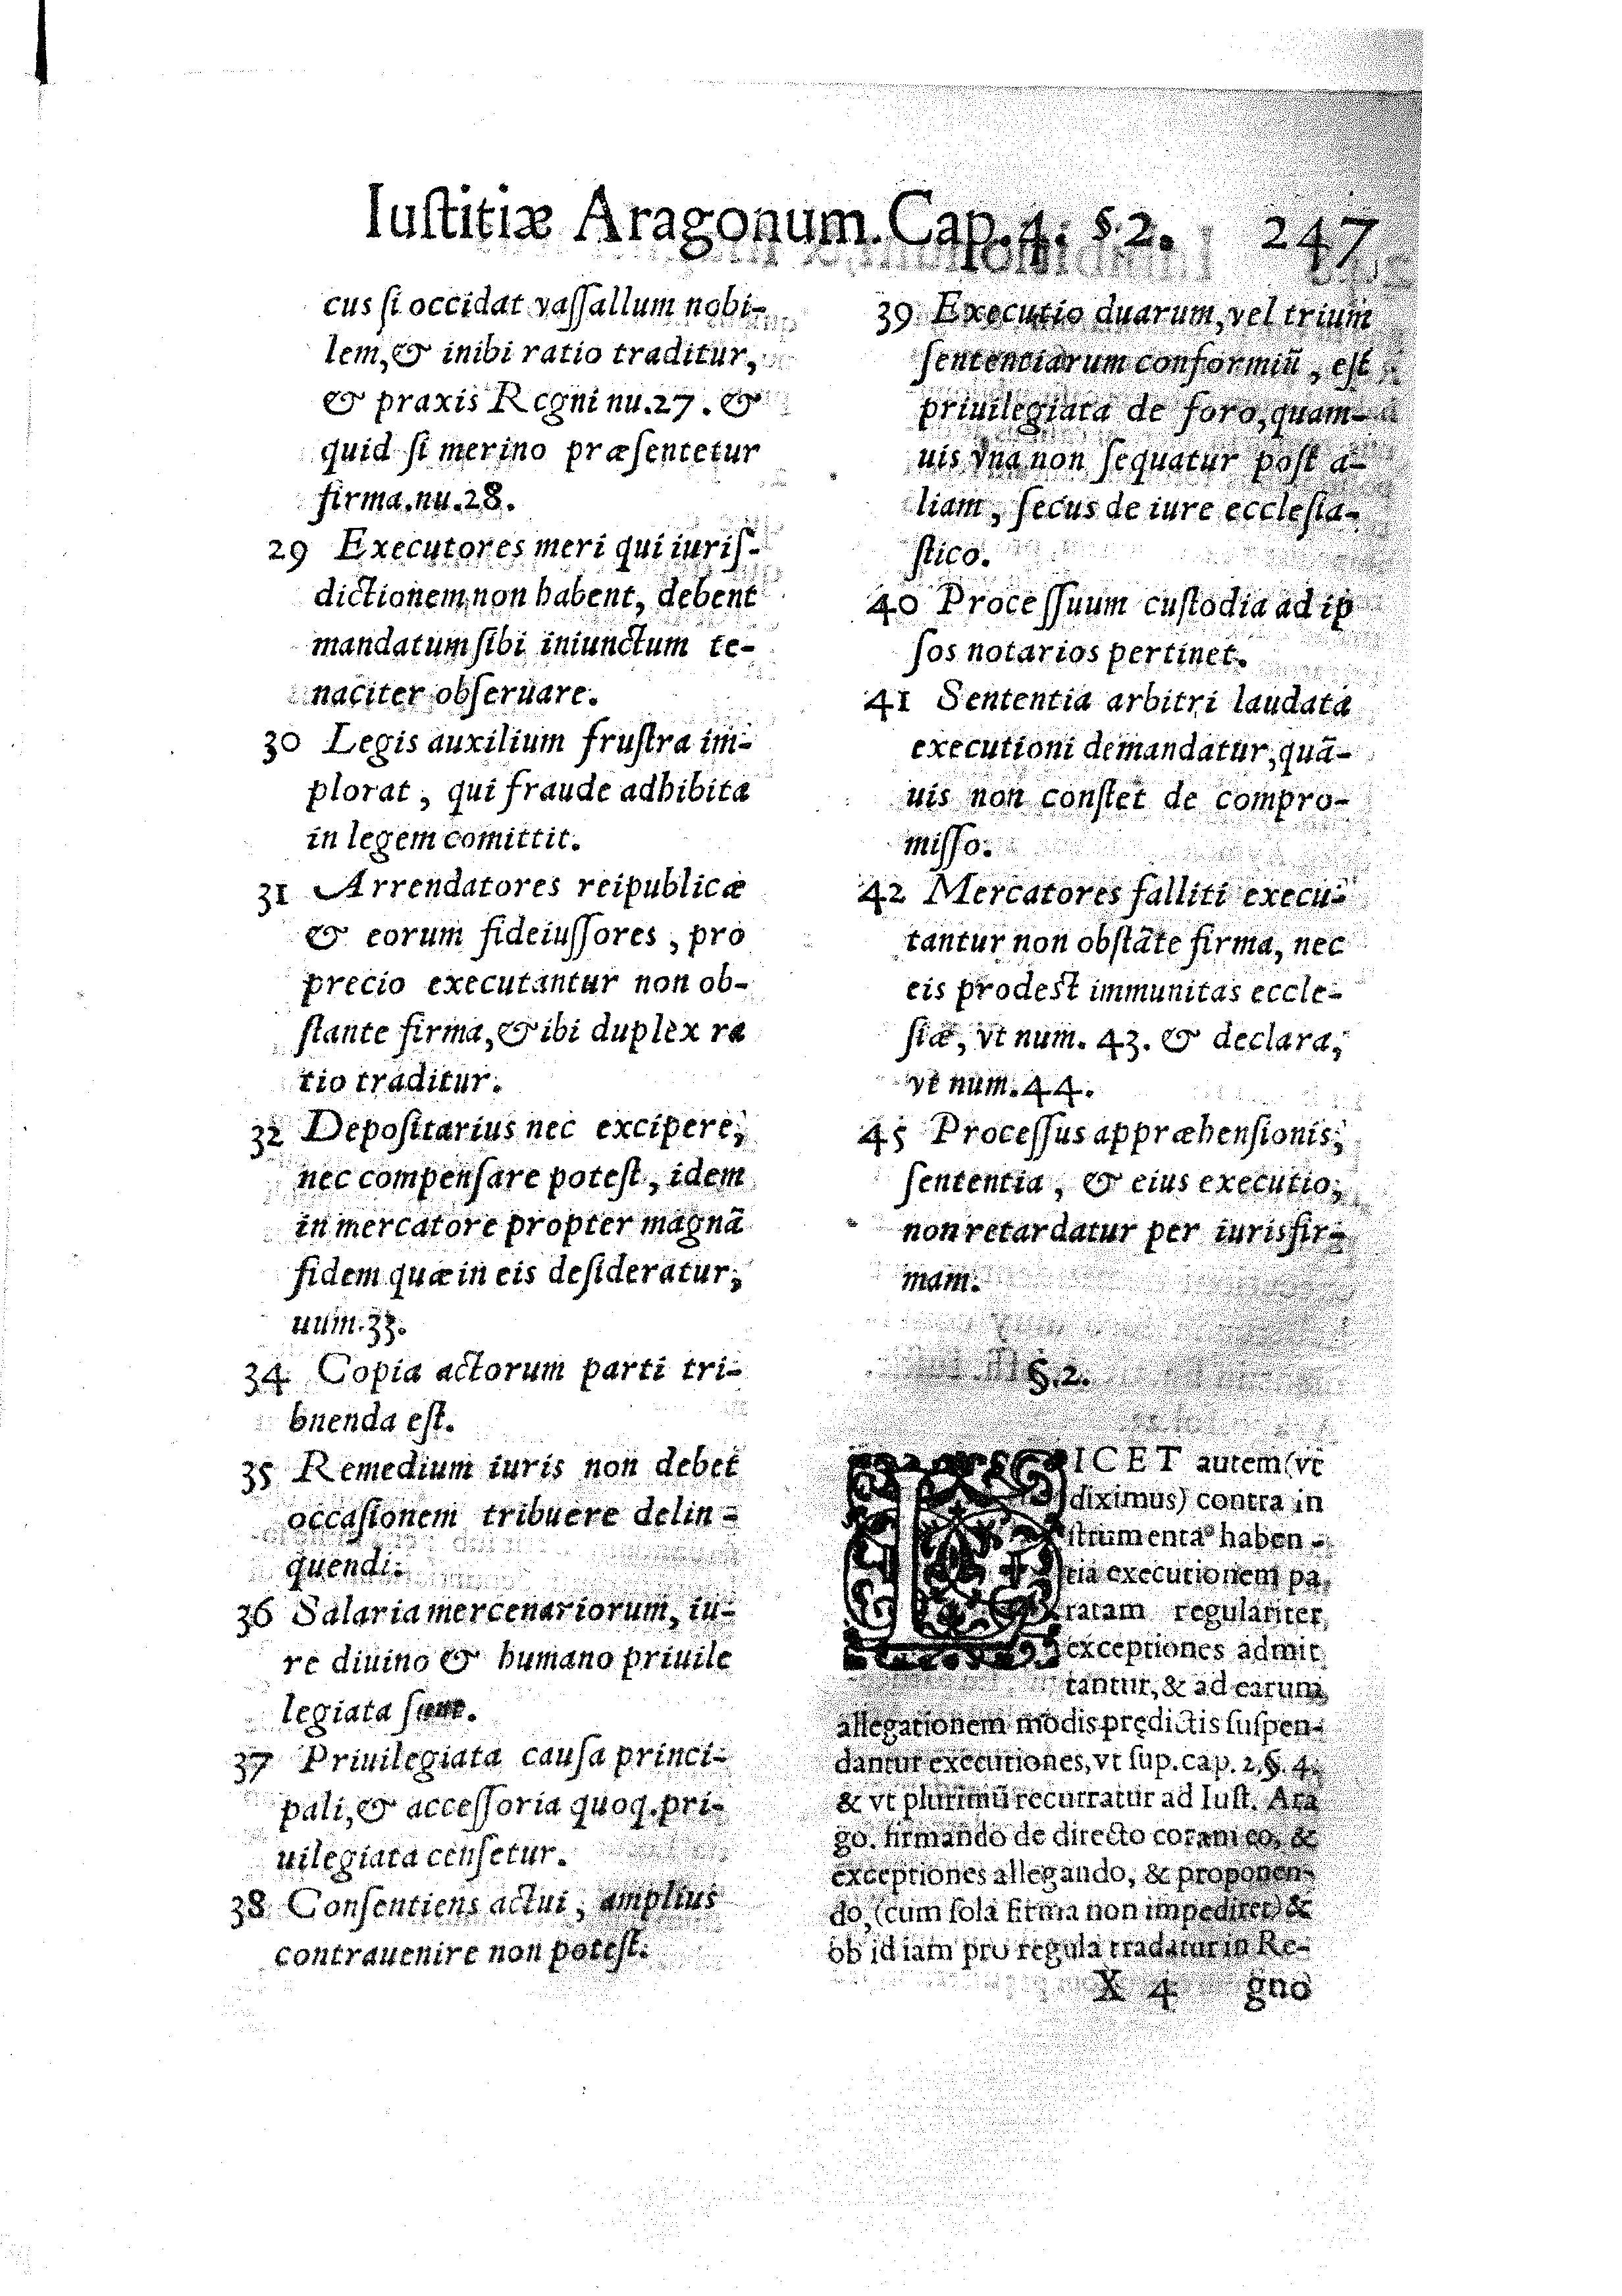 Iuſtitiæ Aragonum. Cap. 4. §. 2. 247
cus ſi occidat vaſſallum nobi-
lem, & inibi ratio traditur,
& praxis Regni nu. 27. &
quid ſi merino præſentetur
firma. nu. 28.
29 Executores meri qui iuriſ-
dictionem non habent, debent
mandatum ſibi iniunctum te-
naciter obſeruare.
30 Legis auxilium fruſtra im-
plorat, qui fraude adhibita
in legem comittit.
31 Arrendatores reipublicæ
& eorum fideiuſſores, pro
precio executantur non ob-
ſtante firma, & ibi duplex ra
tio traditur.
32 Depoſitarius nec excipere,
nec compenſare poteſt, idem
in mercatore propter magnã
fidem quæ in eis deſideratur,
uum. 33.
34 Copia actorum parti tri-
buenda eſt.
35 Remedium iuris non debet
occaſionem tribuere delin-
quendi.
36 Salaria mercenariorum, iu-
re diuino & humano priuile
legiata ſunt.
37 Priuilegiata cauſa princi-
pali, & acceſſoria quoq. pri-
uilegiata cenſetur.
38 Conſentiens actui, amplius
contrauenire non poteſt.
39 Executio duarum, vel trium
ſententiarum conformiũ, eſt
priuilegiata de foro, quam-
uis vna non ſequatur poſt a-
liam, ſecus de iure eccleſia-
ſtico.
40 Proceſſuum cuſtodia ad ip
ſos notarios pertinet.
41 Sententia arbitri laudata
executioni demandatur, quã-
uis non conſtet de compro-
miſſo.
42 Mercatores falliti execu-
tantur non obſtãte firma, nec
eis prodeſt immunitas eccle-
ſiæ, vt num. 43. & declara,
vt num. 44.
45 Proceſſus appræhenſionis,
ſententia, & eius executio,
non retardatur per iurisfir-
mam.
§. 2.
LICET autem (vt
diximus) contra in
ſtrumenta haben-
tia executionem pa
ratam regulariter
exceptiones admit
tantur, & ad earum
allegationem modis prędictis ſuſpen-
dantur executiones, vt ſup. cap. 2. §. 4.
& vt plurimũ recurratur ad Iuſt. Ara
go. firmando de directo coram eo, &
exceptiones allegando, & proponen-
do, (cum ſola firma non impediret) &
ob id iam pro regula tradatur in Re-
X 4 gno